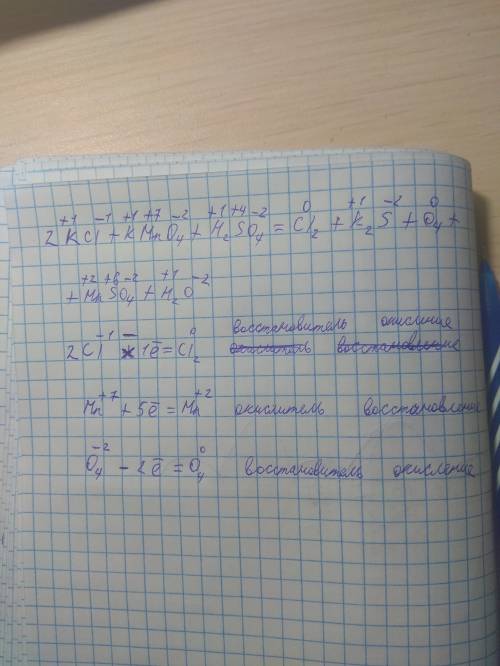 2K⁺¹Cl⁻¹ + K⁺¹Mn⁺⁷O₄⁻² + H₂⁺¹S⁺⁴O₄⁻² = Cl₂⁰ + K₂⁺¹S⁻² + O₄⁰ +
+ Mn⁺²S⁺⁶O₄⁻² + H₂⁺¹O⁻²
2Cl⁻¹ − 1ē = Cl₂⁰ восстановитель окисление
окислитель восстановление
Mn⁺⁷ + 5ē = Mn⁺² окислитель восстановление
O₄⁻² − 2ē = O₄⁰ восстановитель окисление